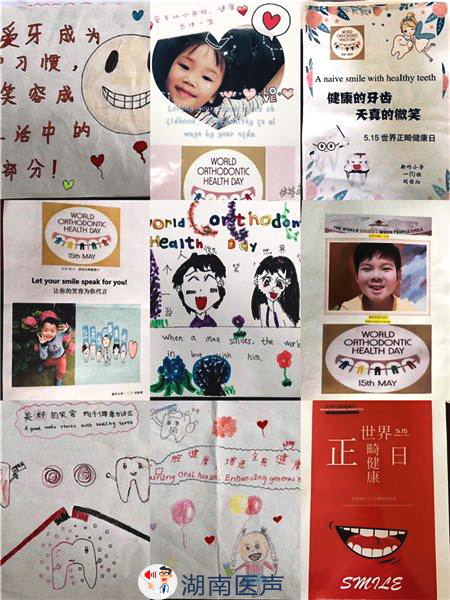 爱牙成为
习惯,
笑容成
活中的
部分!
爱牙从小开始,健康
Loving your teeth
childhood.
ways by your side.
WORLD
ORTHODONTIC
HEALTH DAY
WORLD
ORTHODONTIC
HEALTH DAY
15th MAY
A naive smile with healthy teeth
健康的牙齿
天真的微笑
5.15 世界正畸健康日
新竹小学
WORLD
ORTHODONTIC
HEALTH DAY
15th MAY
Let your smile speak for you!
让你的笑容为你代言
World Orthodon
Health Day
when a man smiles, the world
in love with him.
THE WORLD UNITES WHEN PEOPLE SMILE
WORLD
ORTHODONTIC
HEALTH DAY
15th MAY
美好的笑容 始于健康的牙齿
A good smile starts with healthy teeth
腔健康 增进全身健康
aining Oral health, Enhancing general h
世界
5.15
正畸
健康
日
SMILE
湖南医声